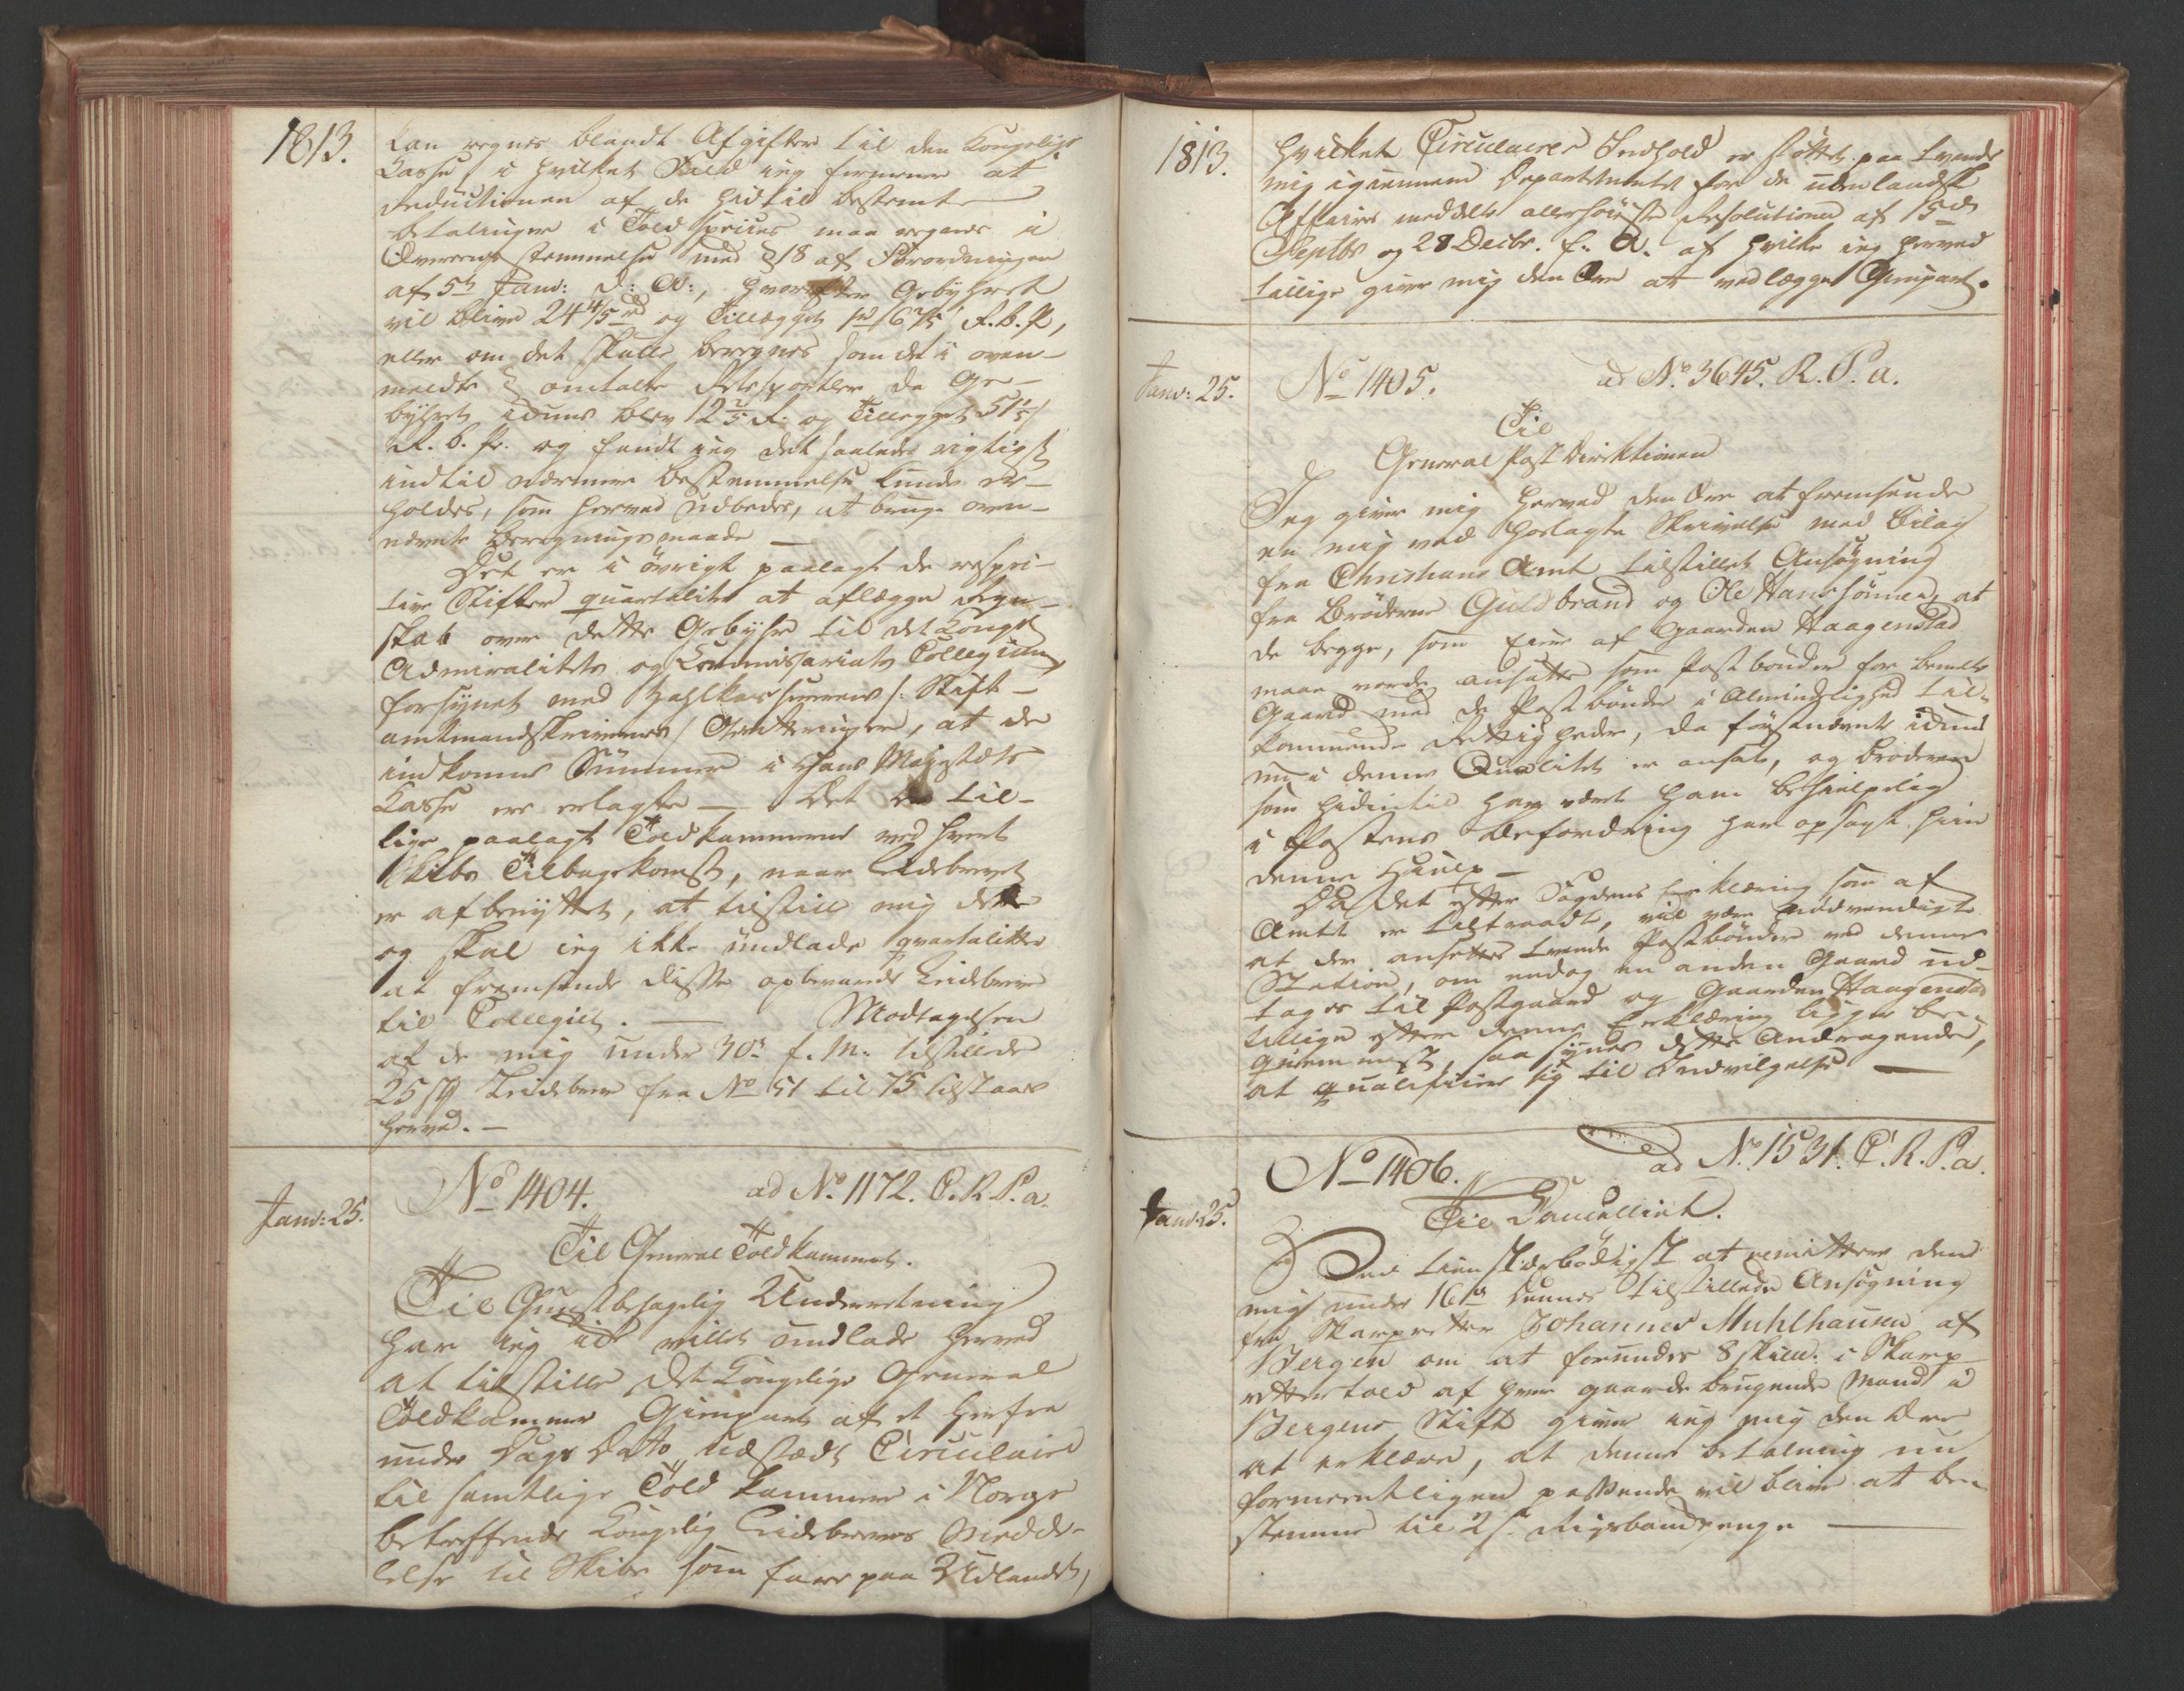 1813.
kan regnes blandt Afgifter til den Kongelige
Casse, i hvilket Fald ieg formener at
reductionen af de hidtil bestemte
betalinger i Told Specier maa regnes i
Overeensstemmelse med § 18 af Forordningen
af 5te Janv: d: A:, hvorefter Gebyhret
vil blive 24 4/5 og Tillægget R. b. ,
eller om det skulle beregnes som det i oven-
meldte § omtalte da Ge-
byhret ickuns blev 12 2/5 og Tillægget 51 1/5
R. b. . og fandt ieg det saaledes rigtigst
indtil nærmere bestemmelse kunde er-
holdes, som herved udbedes, at bruge oven-
nævnte Beregningsmaade —
Det er i övrigt paalagt de respec-
tive Stifter quartaliter at aflægge Regn-
skab over dette Gebyhr til det Kongel
Admiralitets og Commissariats Collegium,
forsynet med Zahlkasserernes /: Stift-
amtmandskrivernes / Qvitteringer, at de
indkomne Summer i Hans Majestæts
Casse ere erlagte — Det er til-
lige paalagt Toldkammerne ved hvert
Skibs Tilbagekomst, naar Leidebrevet
er afbenyttet, at tilstille mig dette
og skal ieg ikke undlade qvartaliter
at fremsende disse opbrugte Leidebreve
til Collegiet. — Modtagelsen
af de mig under 30te f. M. tilstillede
25 Leidebreve fra No 51 til 75 tilstaaes
herved. —
Janv: 25.
No 1404. ad No. 1172. C. R. P. a.
Til General Toldkammeret.
Til Gunstbehagelig Underretning
har ieg ei villet undlade herved
at tilstille Det Kongelige General
Toldkammer Gienpart af et herfra
under Dags Dato udstædt Circulaire
til samtlige Told kammere i Norge
betreffende Kongelig Leidebreves Medde-
lelse til Skibe som fare paa Udlandet,
1813.
hvilket Circulaires Indhold er støttet paa tvende
mig igiennem Departementet for de udenlandske
Affairer meddelte allerhöieste Resolutioner af 15de
Septbr og 28 Decbr. f. A. af hvilke ieg herved
tillige giver mig den Ære at vedlægge Gienpart.
Janv: 25.
No 1405. ad No. 3645. R. P. a.
Til
General Post Direktionen
Jeg giver mig herved den Ære at fremsende
en mig ved hoslagte Skrivelse med Bilag
fra Christians Amt tilstillet Ansögning
fra Brödrene Guldbrand og Ole Hanssönner, at
de begge, som Eiere af Gaarden Haagenstad
maae vorde ansatte som Postbönder for bemelte
Gaard med de Postbönder i Almindelighed til-
kommende Rettigheder, da förstnævnte ickuns
nu i denne Qualitet er ansat, og Broderen
som hidindtil har været ham behielpelig
i Postens Befordring har opsagt ham
denne Hielp —
Da det efter Fogdens Erklæring som af
Amtet er tiltraadt, vil være nødvendigt
at der ansættes tvende Postbönder ved denne
Station, om endog en anden Gaard ud-
tages til Postgaard og Gaarden Haagenstad
tillige efter denne Erklæring ligger be-
qvemmest, saa synes dette Andragende,
at qualificere sig til Indvilgelse —
Janv: 25.
No 1406. ad No. 1531. C. R. P. a.
Til Cancelliet.
Ved tienstærbödigst at remittere den
mig under 16de dennes tilstillede Ansögning
fra Skarpretter Johannes Muhlhausen af
Bergen om at forundes 8 skill: i Skarp-
rettertold af hver gaardebrugende Mand i
Bergens Stift giver ieg mig den Ære
at erklære, at denne betalning nu
formeentligen passende vil blive at be-
stemme til 2 s. Rigsbankpenge —